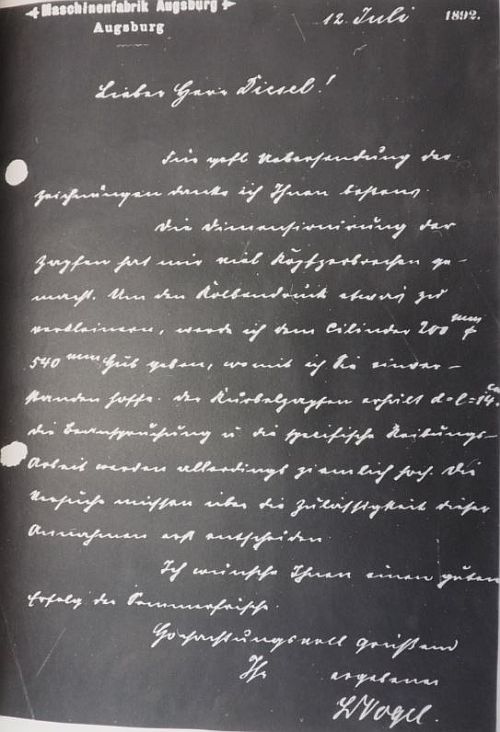 Maschinenfabrik Augsburg
Augsburg
12. Juli 1892.
Lieber Herr Diesel!
Für gefl Uebersendung der
Zeichnungen danke ich Ihnen bestens.
Die Dimensionirung der
Zapfen hat mir viel Kopfzerbrechen ge-
macht. Um den Kolbendruck etwas zu
verkleinern, werde ich dem Cilinder 200 mm ϕ
540 mm Hub geben, womit ich Sie einver-
standen hoffe. Der Kurbelzapfen erhält d=l=14 cm.
die Beanspruchung u die spezifische Reibungs-
Arbeit werden allerdings ziemlich hoch. Die
Versuche müssen über die Zulässigkeit dieser
Annahmen erst entscheiden.
Ich wünsche Ihnen einen guten
Erfolg der Sommerfrische.
Hochachtungsvoll grüßend
Ihr ergebener
L Vogel.